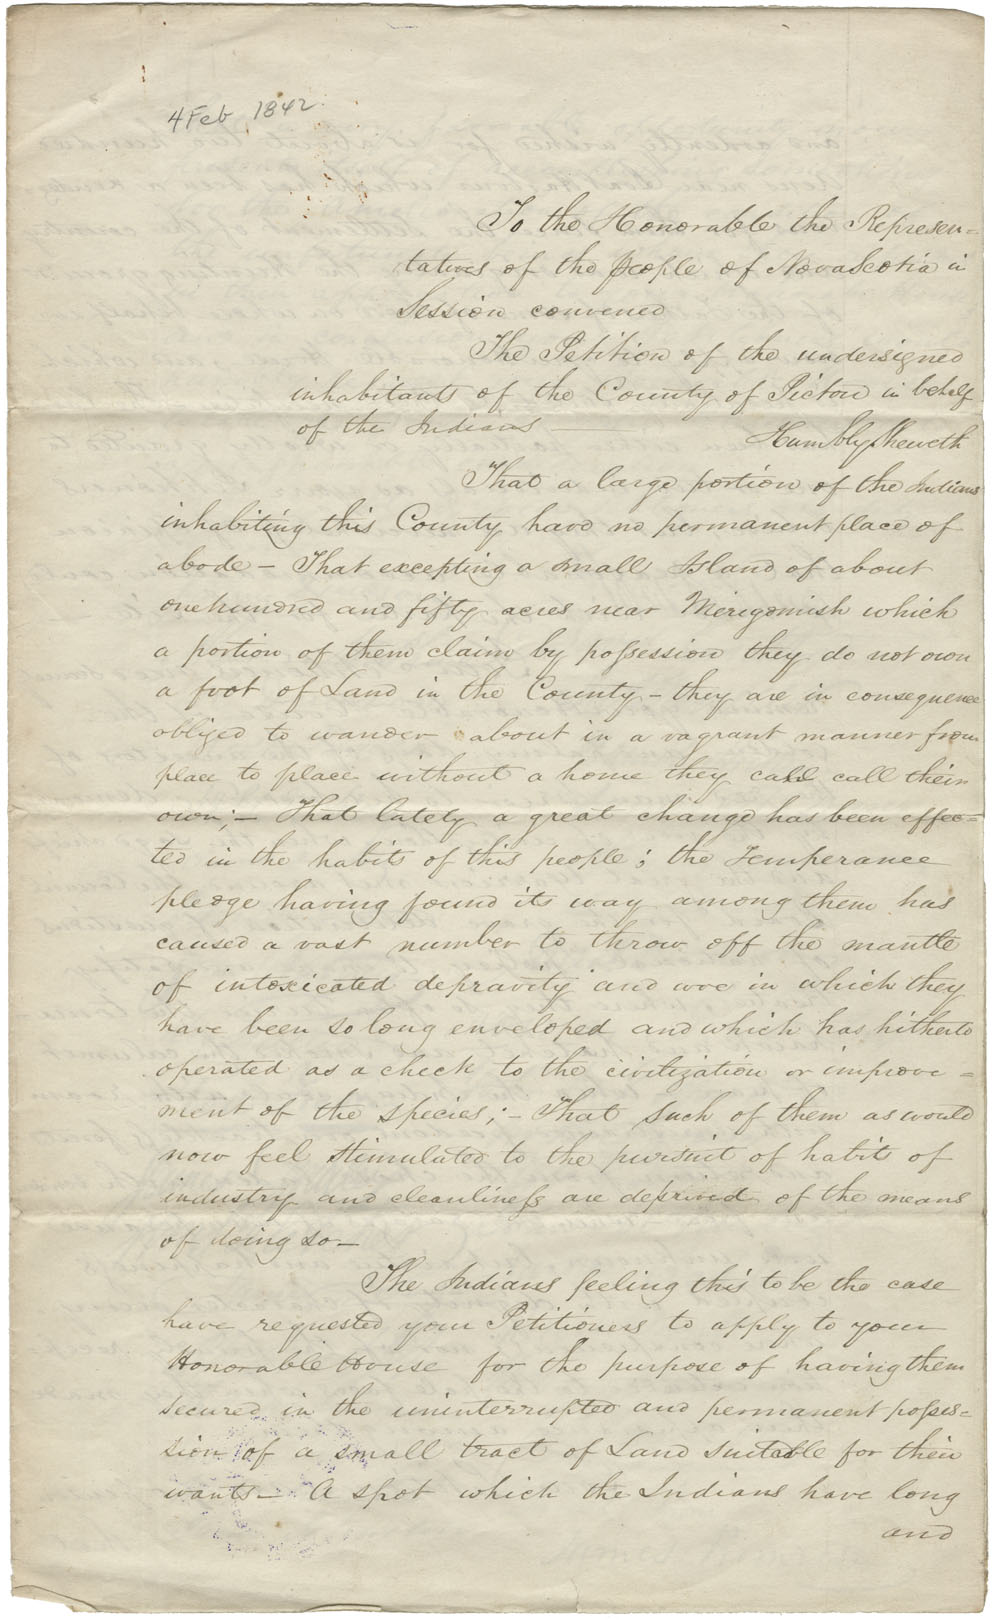 4 Feb 1842
To the Honorable the Represen=
tatives of the People of Nova Scotia in
Session convened
The Petition of the undersigned
inhabitants of the County of Pictou in behalf
of the Indians —— Humbly Sheweth
That a large portion of the Indians
inhabiting this County have no permanent place of
abode – That excepting a small Island of about
one hundred and fifty acres near Merigomish which
a portion of them claim by possession they do not own
a foot of Land in the County – they are in consequence
obliged to wander about in a vagrant manner from
place to place without a home they call their
own; – That lately a great change has been effec=
ted in the habits of this people; the Temperance
pledge having found its way among them has
caused a vast number to throw off the mantle
of intoxicated depravity and woe in which they
have been so long enveloped and which has hitherto
operated as a check to the civilization or improve=
ment of the species; – That such of them as would
now feel stimulated to the pursuit of habits of
industry and cleanliness are deprived of the means
of doing so –
The Indians feeling this to be the case
have requested your Petitioners to apply to your
Honorable House for the purpose of having them
secured in the uninterrupted and permanent posses=
sion of a small tract of Land suitable for their
wants – A spot which the Indians have long
and